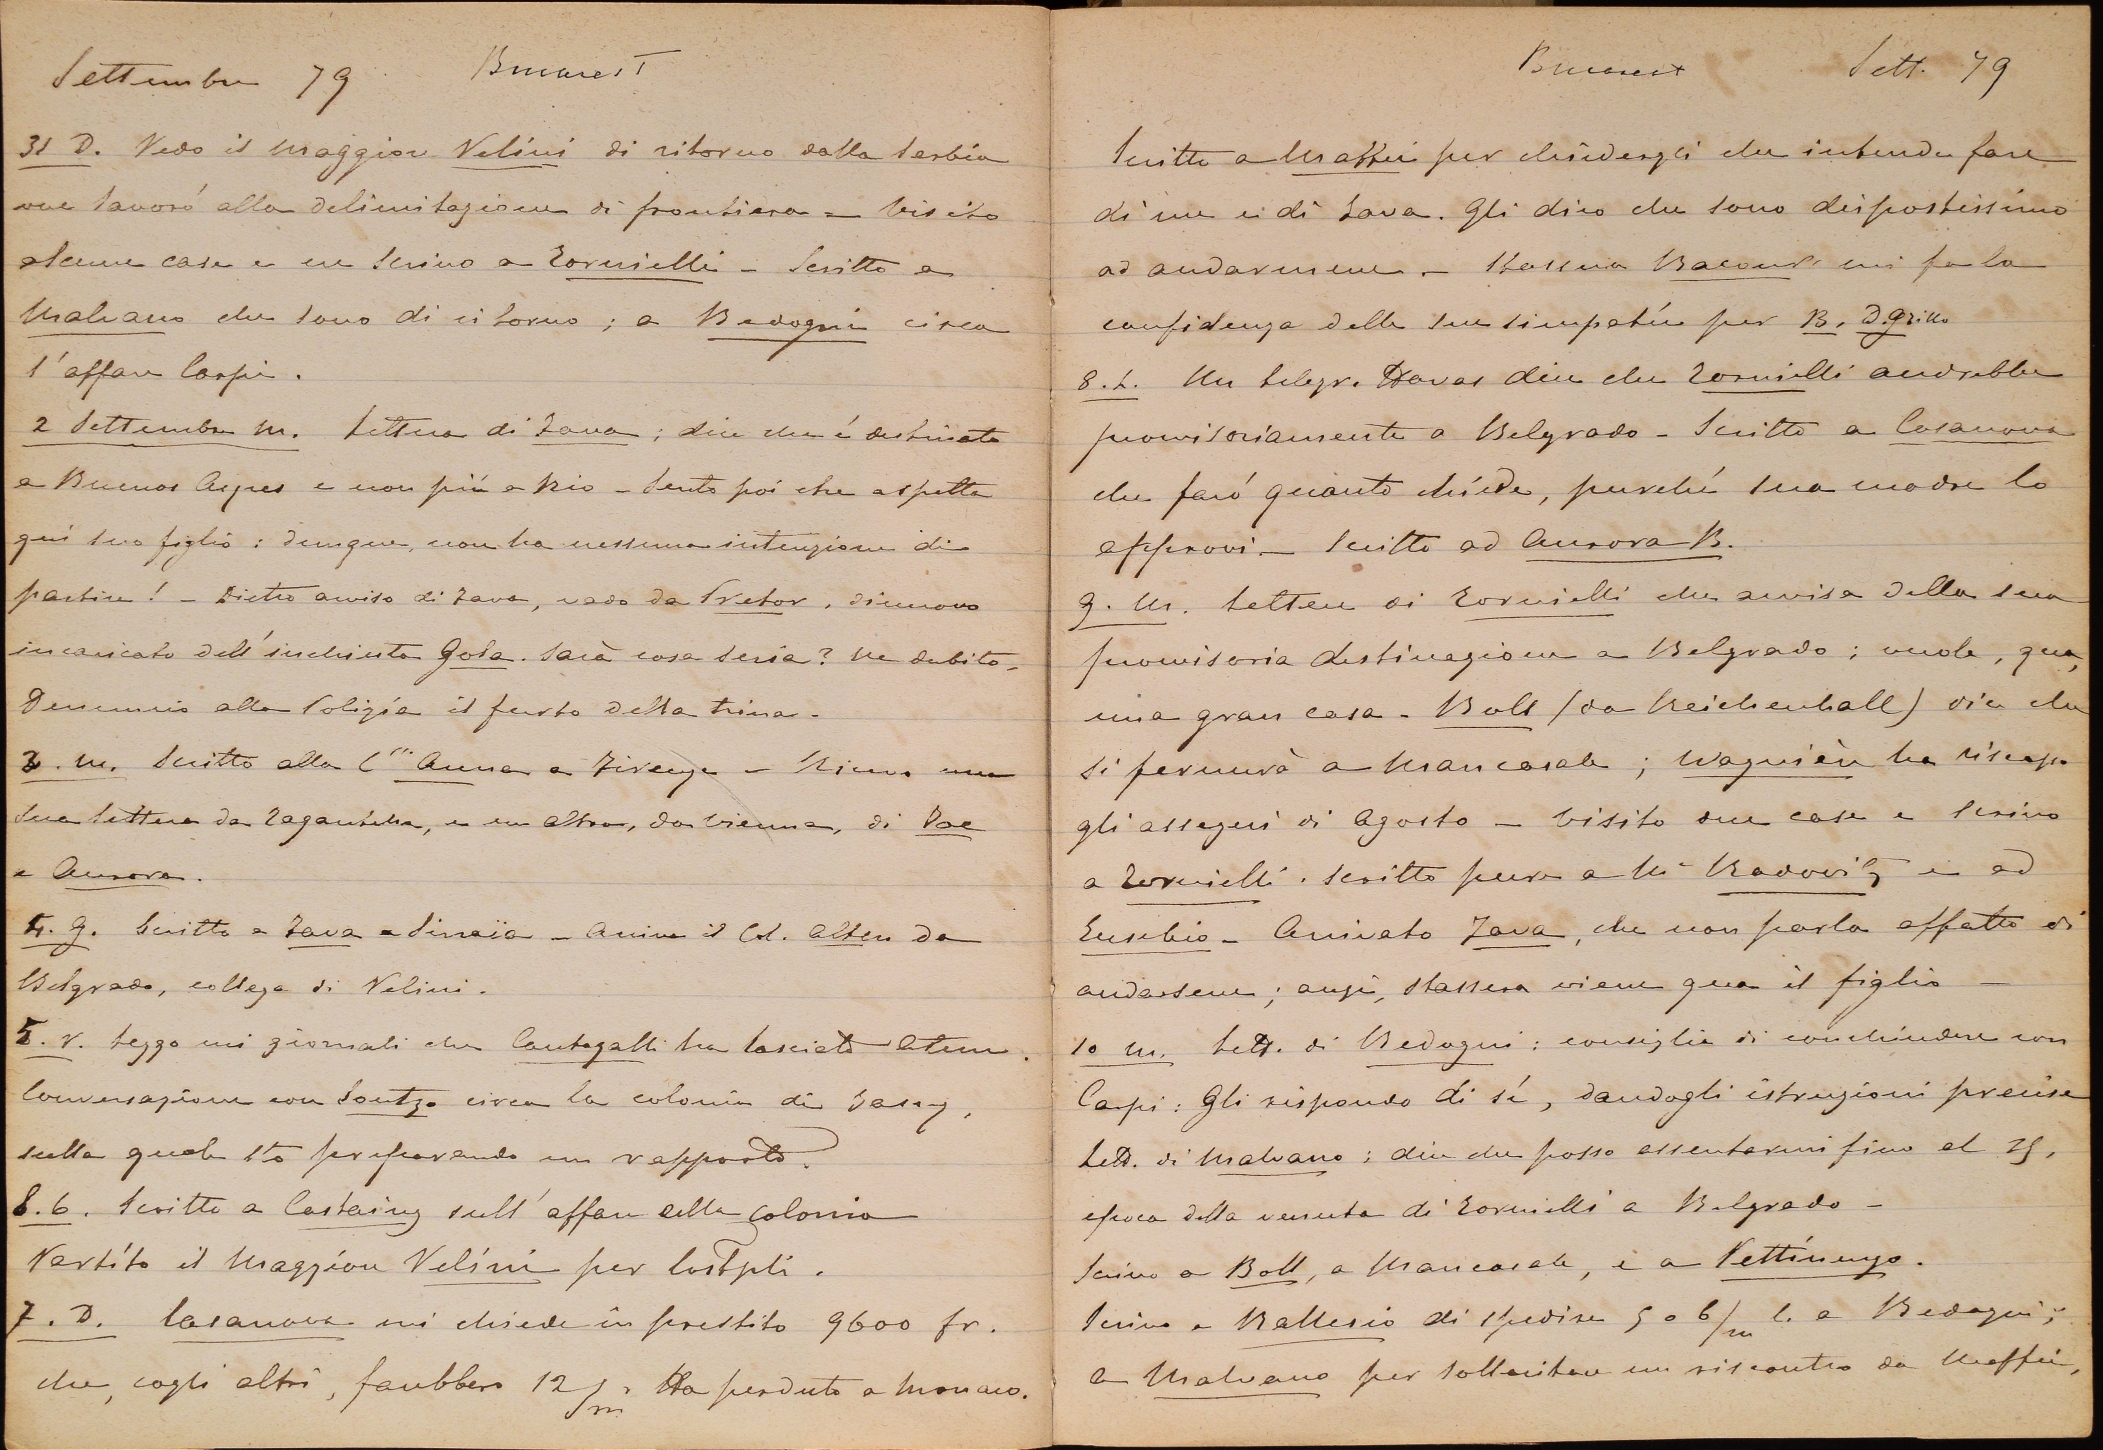 Settembre 79 Bucarest
31 D. Vedo il Maggiore Velini di ritorno dalla Serbia
ove lavorò alla delimitazione di frontiera - Visito
alcune case e ne scrivo a Tornielli - Scritto a
Malvano che sono di ritorno ; a Bedogni circa
l'affare Carpi.
2 Settembre M. Lettera di Fava ; dice che è destinato
a Buenos Ayres e non più a Rio - Sento poi che aspetta
quì suo figlio : dunque, non ha nessuna intenzione di
partire ! - Dietro avviso di Fava, vado da Pretor, dinuovo
incaricato dell'inchiesta Gola. Sarà cosa seria ? Ne dubito -
Denunnio alla Polizia il furto della trina -
3. M. Scritto alla C.ssa Anna a Firenze - Ricevo una
sua lettera da , e un altra, da Vienna, di Zoe
e Aurora.
4. G. Scritto a Fava a Sinaïa - Arriva il Col. Alten da
Belgrado, collega di Velini.
5. V. Leggo nei giornali che Cantagalli ha lasciato Atene.
Conversazione con Soutzo circa la colonia di Jassy,
sulla quale stò preparando un rapporto.
S. 6. Scritto a Castaing sull'affare della colonia
Partito il Maggiore Velini per Costpli.
7. D. Casanova mi chiede in prestito 9600 fr.
che, cogli altri, farebbero 12/m. Ha perduto a Monaco.
Bucarest Sett. 79
Scritto a Maffei per chiedergli che intende fare
di me e di Fava. Gli dico che sono dispostissimo
ad andarmene. - Stassera Bacourt mi fa la
confidenza delle sue simpatíe per B. D. Grillo
8. L. Un telegr. Havas dice che Tornielli andrebbe
provvisoriamente a Belgrado - Scritto a Casanova
che farò quanto chiede, purchè sua madre lo
approvi - Scritto ad Aurora B.
9. M. Lettera di Tornielli che avvisa della sua
provvisoria destinazione a Belgrado ; vuole, qua,
una gran casa - Boll (da Reichenhall) dice che
si fermerà a Mancasale ; Wagnière ha riscosso
gli assegni di Agosto - Visito due case e scrivo
a Tornielli. Scritto pure a Mr Radovitz e ad
Eusebio - Arrivato Fava, che non parla affatto di
andarsene ; anzi, stassera viene qua il figlio -
10 M. Lett. di Bedogni : consiglia di conchiudere con
Carpi : Gli rispondo di sì, dandogli istruzioni precise
Lett. di Malvano ; dice che posso assentarmi fino al 25,
epoca della venuta di Tornielli a Belgrado -
Scrivo a Boll, a Mancasale, e a Pettinengo.
Scrivo a Ballesio di spedire 5 o 6/m l. a Bedogni ;
a Malvano per sollecitare un riscontro da Maffei,